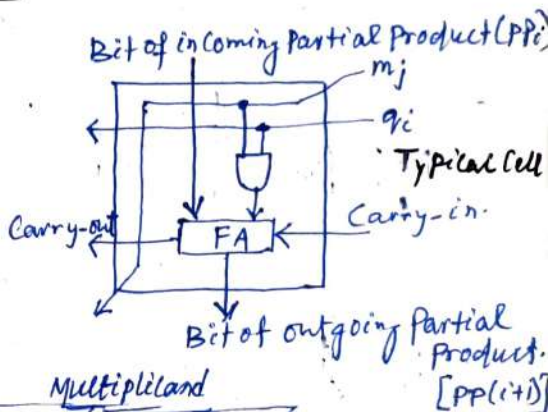 Bit of incoming Partial Product (PPi)
mj
qi
Typical Cell
Carry-out
FA
Carry-in.
Bit of outgoing Partial
Product.
[PP(i+1)]
Multiplicand